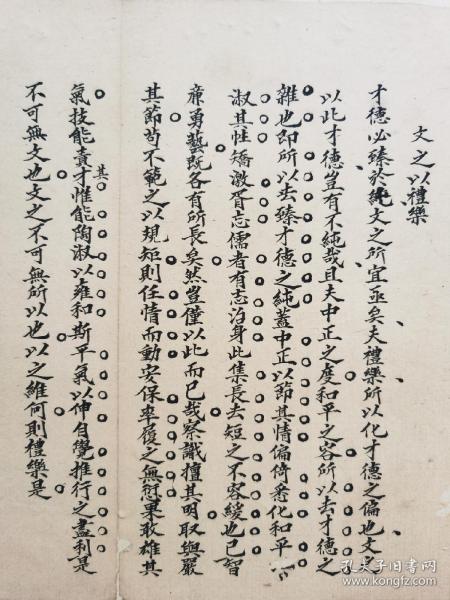 文之以禮樂
才德必臻於純文之所宜亟矣夫禮樂所以化才德之偏也文之
以此才德豈有不純哉且夫中正之度和平之容所以去才德之
雜也即所以去臻才德之純蓋中正以節其情偏倚悉化和平以
淑其性矯激胥忘儒者有志治身此集長去短之不容緩也已智
廉勇藝既各有所長矣然豈僅以此而已哉察識擅其明取與嚴
其節苟不範之以規矩則任情而動安保率履之無愆果敢雄其
氣技能責其才惟能陶淑以雍和斯平氣以伸自覺推行之盡利是
不可無文也文之不可無所以也以之維何則禮樂是
孔夫子旧书网
www.kongfz.com